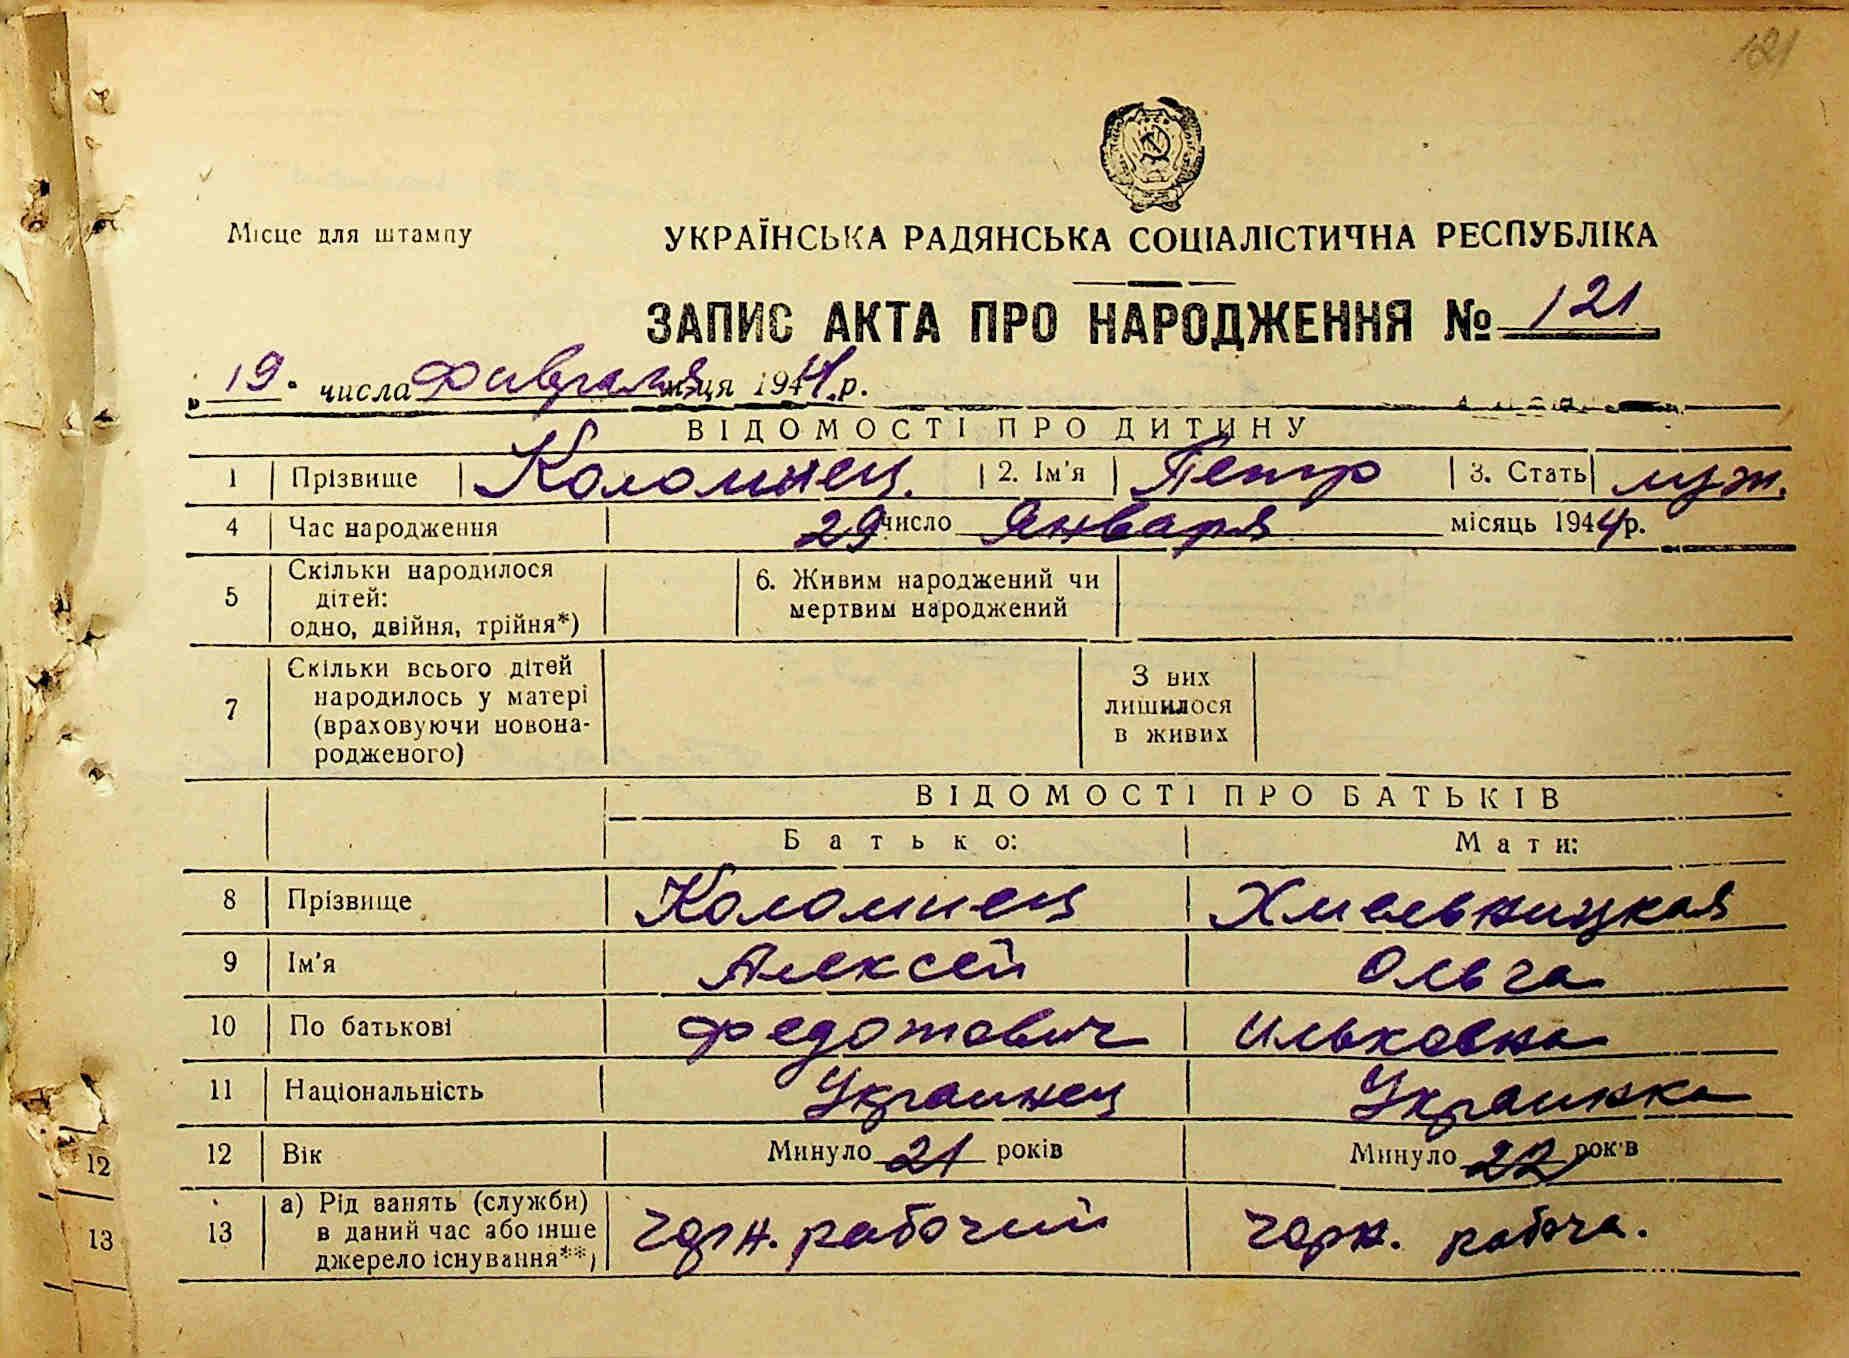 121
Місце для штампу
УКРАЇНСЬКА РАДЯНСЬКА СОЦІАЛІСТИЧНА РЕСПУБЛІКА
ЗАПИС АКТА ПРО НАРОДЖЕННЯ № 121
19 числа Февраля м-ця 1944 р.
ВІДОМОСТІ ПРО ДИТИНУ
1 Прізвище Коломиец. 2. Ім'я Петр 3. Стать муж.
4 Час народження 29 число Января місяць 1944 р.
5 Скільки народилося дітей: одно, двійня, трійня*) 6. Живим народжений чи мертвим народжений
7 Скільки всього дітей народилось у матері (враховуючи новонародженого) З них лишилося в живих
ВІДОМОСТІ ПРО БАТЬКІВ
Батько: Мати:
8 Прізвище Коломиец Хмельницкая
9 Ім'я Алексей Ольга
10 По батькові Федотович Ильковна
11 Національність Украинец Украинка
12 Вік Минуло 21 років Минуло 22 років
12
13 а) Рід занять (служби) в даний час або інше джерело існування**) чорн. рабочий чорн. рабоча.
13